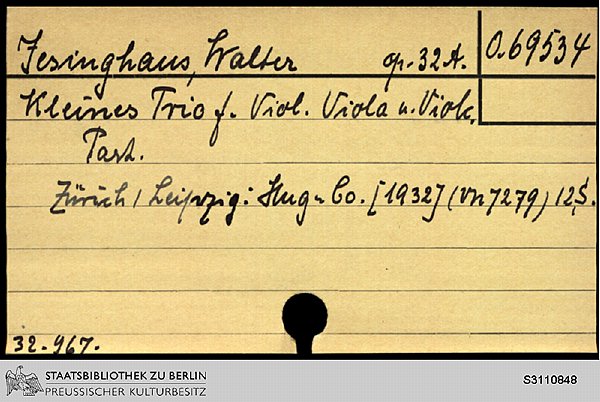 Jesinghaus, Walter op. 32A. O.69534
Kleines Trio f. Viol. Viola u. Violc.
Part.
Zürich / Leipzig: Hug u Co. [1932] (VN 7279) 12S.
32.967.
STAATSBIBLIOTHEK ZU BERLIN
PREUSSISCHER KULTURBESITZ
S3110848